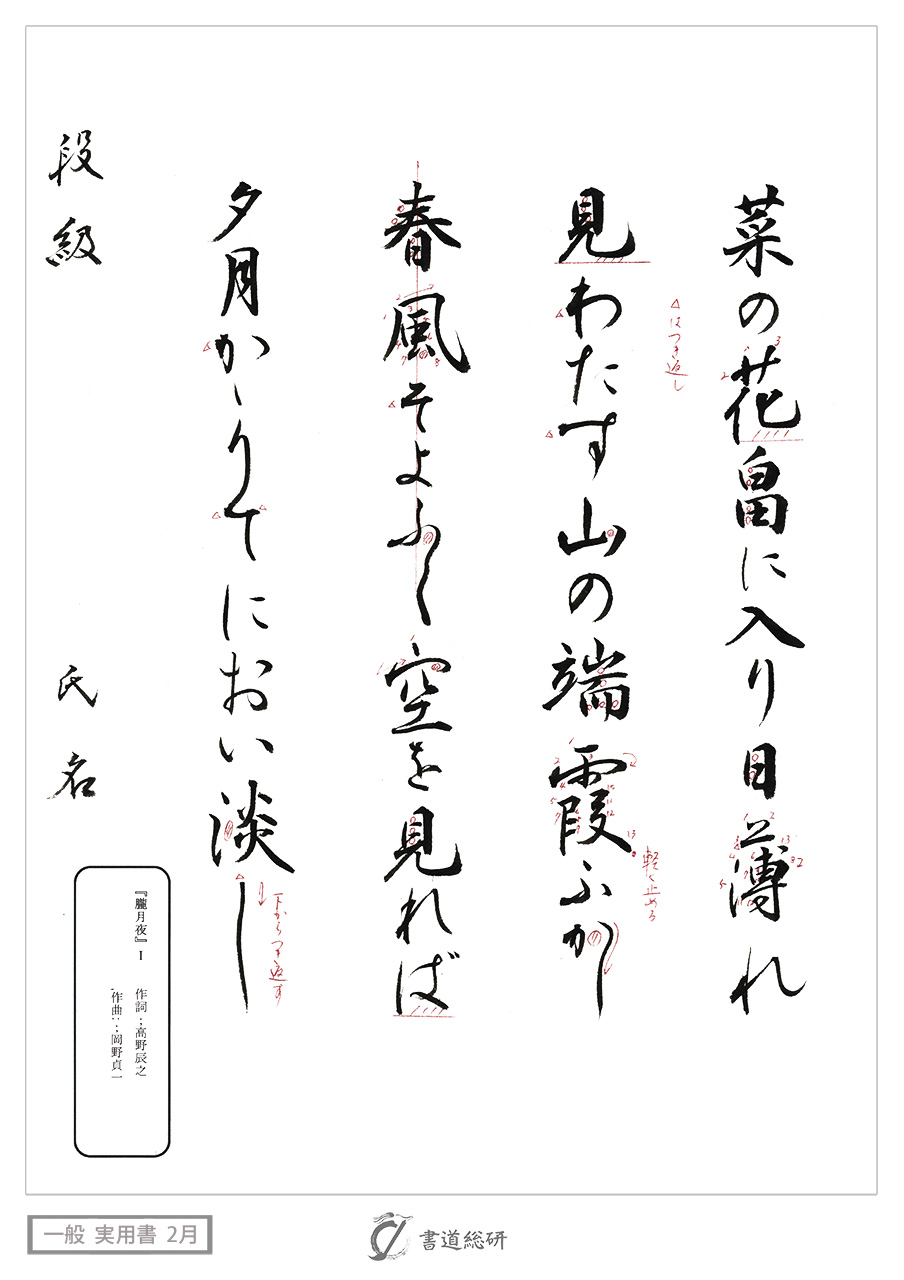 菜の花畠に入り日薄れ
見わたす山の端霞ふかし
春風そよふく空を見れば
夕月かゝりてにおい淡し
段級 氏名
△はつき返し
軽く止める
下からつき返す
『朧月夜』Ⅰ 作詞：高野辰之
作曲：岡野貞一
一般 実用書 2月
書道総研